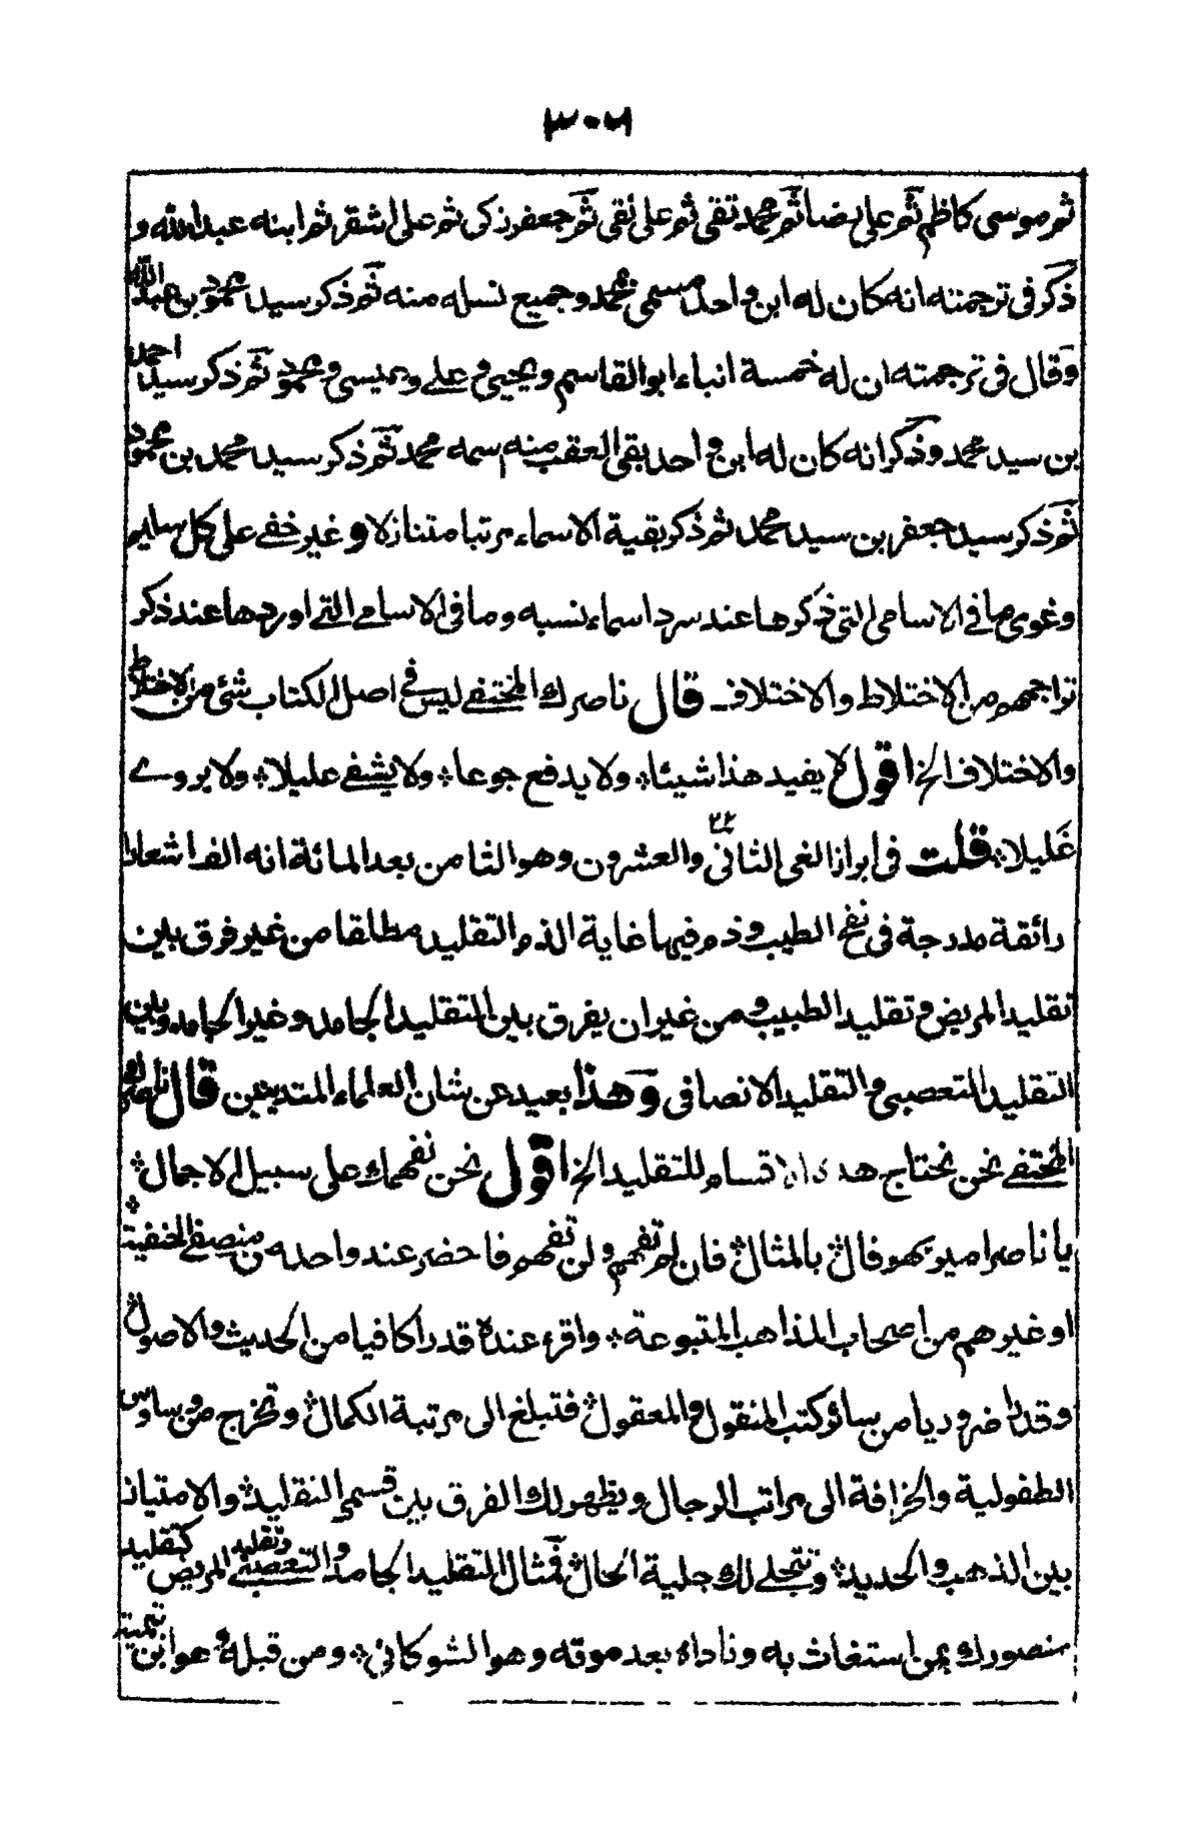 ٣٠٦
ثم موسى كاظم ثم على رضا ثم محمد تقى ثم على نقى ثم جعفر زكى ثم على اشقر ثم ابنه عبد الله و
ذكر فى ترجمته انه كان له ابن واحد مسمى بمحمد وجميع نسله منه ثم ذكر سيد محمود بن عبد الله
وقال فى ترجمته ان له خمسة ابناء ابو القاسم ويحيى وعلى وعيسى ومحمود ثم ذكر سيد احمد
بن سيد محمد وذكر انه كان له ابن واحد بقى العقب منه اسمه محمد ثم ذكر سيد محمد بن محمود
ثم ذكر سيد جعفر بن سيد محمد ثم ذكر بقية الاسماء مرتبا متنازلا وغير خفى على كل سليم
وغوى ما فى الاسامى التى ذكرها عند سرد اسماء نسبه وما فى الاسامى التى اوردها عند ذكر
تراجمهم من الاختلاط والاختلاف قال ناصرك المختفى ليس فى اصل الكتاب شئ من الاختلاط
والاختلاف الخ اقول لا يفيد هذا شيئا؞ ولا يدفع جوعا؞ ولا يشفى عليلا؞ ولا يروى
غليلا؞ قلت فى ابراز الغى الثانى ٢٢ والعشرون وهو الثامن بعد المائة انه الف اشعارا
رائقة مدرجة فى نفح الطيب وذم فيها غاية الذم التقليد مطلقا من غير فرق بين
تقليد المريض وتقليد الطبيب ومن غير ان يفرق بين التقليد الجامد وغير الجامد وبين
التقليد التعصبى والتقليد الانصافى وهذا بعيد عن شان العلماء المتدينين قال ناصرك
المختفى نحن نحتاج هذه الاقسام للتقليد الخ اقول نحن نفهمك على سبيل الاجمال؞
يا ناصر امير بهوفال؞ بالمثال؞ فان لم تفهم ولن تفهم فاحضر عند واحد من منصفى الحنفية؞
او غيرهم من اصحاب المذاهب المتبوعة؞ واقرء عنده قدرا كافيا من الحديث والاصول؞
وقدرا ضروريا من سائر كتب المنقول والمعقول؞ فتبلغ الى مرتبة الكمال؞ وتخرج من وساوس
الطفولية والخرافة الى مراتب الرجال ويظهر لك الفرق بين قسمى التقليد؞ والامتياز
بين الذهب والحديد؞ وتتجلى لك جلية الحال؞ فمثال التقليد الجامد والتعصبى وتقليد المريض كتقليد
منصورك بمن استغاث به وناداه بعد موته وهو الشوكانى؞ ومن قبله وهو ابن تيمية